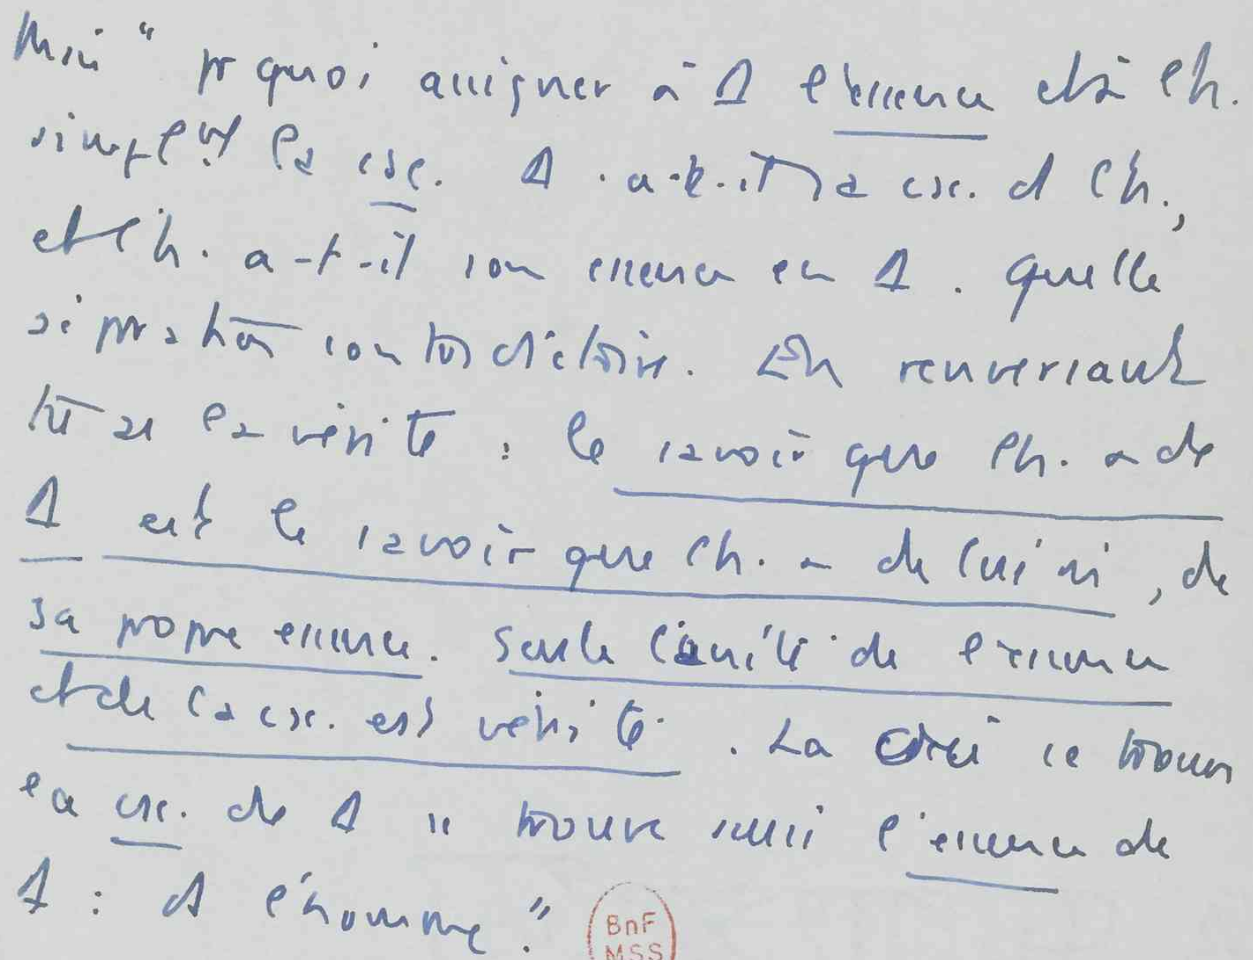 Mais " pr quoi assigner à Δ l'essence et à l'h.
simplemt la csc. Δ a-t-il sa csc. ds l'h.,
et l'h. a-t-il son essence en Δ. Quelle
séparation contradictoire. En renversant
la vérité : le savoir que l'h. a de
Δ est le savoir que l'h. a de lui m̂, de
sa propre essence. Seule l'unité de l'essence
et de la csc. est vérité. La où se trouve
la csc. de Δ se trouve aussi l'essence de
Δ : ds l'homme."
BnF
MSS